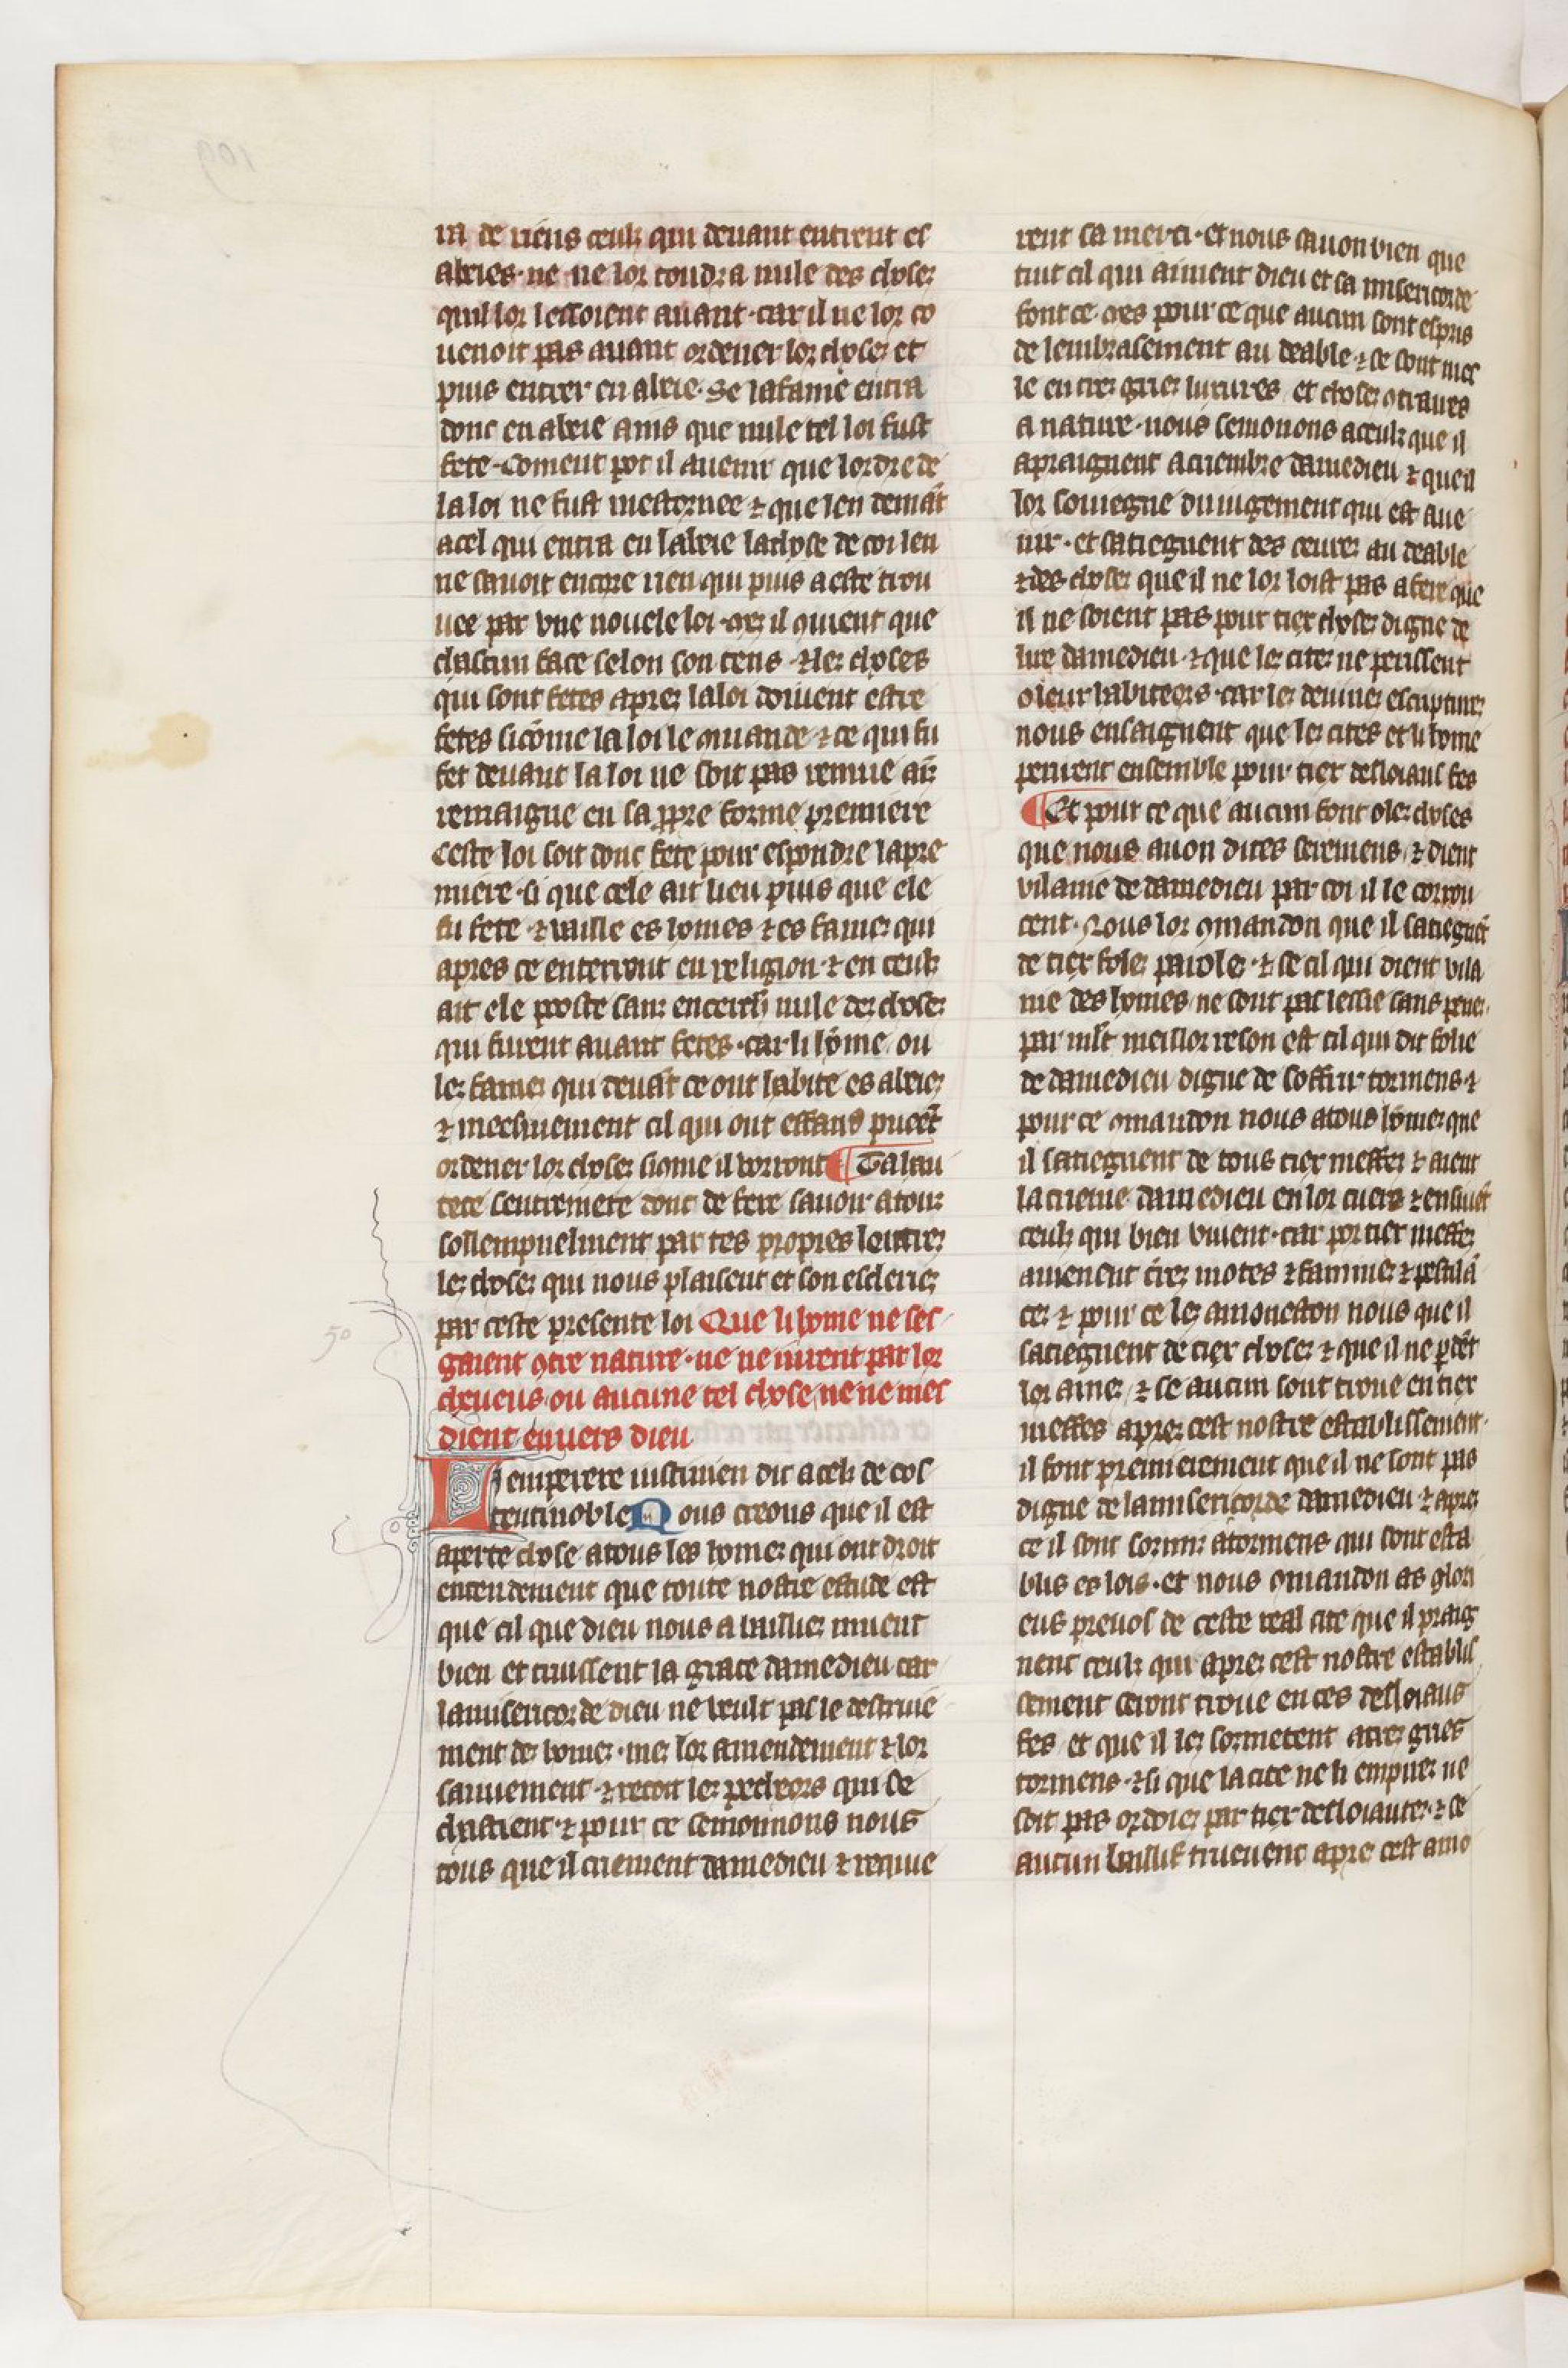 ra de riens ceulz qui deuant entrent es
abeies · ne ne lor toudra nule des choses
quil lor lessoient auant · car il ne lor co
uenoit pas auant ordener lor choses et
puis entrer en abeie · Se la fame entra
donc en abeie ains que nule tel loi fust
fete · Coment pot il auenir que lordre de
la loi ne fust mestornee ⁊ que len demāt
a cel qui entra en labeie la chose de coi len
ne sauoit encore rien qui puis a este trou
uee par vne nouele loi · mes il ꝯuient que
chascun face selon son tens · ⁊ les choses
qui sont fetes apres la loi doiuent estre
fetes sicōme la loi le ꝯmande · ⁊ ce qui fu
fet deuant la loi ne soit pas remue ainz
remaigne en sa ppre forme premiere
ceste loi soit donc fete pour espondre la pre
miere · si que cele ait lieu puis que ele
fu fete · ⁊ vaille es homes ⁊ es fames qui
apres ce enterront en religion · ⁊ en ceulz
ait ele poste sanz encerchier nule des choses
qui furent auant fetes · car li home ou
les fames qui deuāt ce ont habite es abeies
⁊ meesmement cil qui ont effans pueēt
ordener lor choses siꝯme il vorront ¶ Ta hau
tece sentremete donc de fere sauoir a touz
sollempnelment par tes propres lentres
les choses qui nous plaisent et son escleries
par ceste presente loi Que li home ne ses
gaient ꝯtre nature · ne ne iurent par lor
cheueus · ou aucune tel chose ne ne mes
dient enuers dieu
Li emperere iustinien dit a celz de cos
tentinoble Nous creons que il est
aperte chose a tous les homes qui ont droit
entendement que toute nostre estude est
que cil que dieu nous a bailliez viuent
bien et truissent la grace damedieu car
la misericorde dieu ne veult pas le destruie
ment des homes · mes lor amendement ⁊ lor
sauuement · ⁊ recoit les pecheors qui se
chastient · ⁊ pour ce semonnons nous
tous que il criement damedieu ⁊ requie
rent sa merci · et nous sauon bien que
tuit cil qui aiment dieu et sa misericorde
font ce · mes pour ce que aucun sont espris
de lembrasement au deable ⁊ se sont mes
le en tres gries luxures et choses ꝯtraires
a nature · nous semonons a ceulz que il
apraignent a criembre damedieu ⁊ que il
lor souiegne du iugement qui est aue
nir · et satiegnent des oeures au deable
⁊ des choses que il ne lor loist pas a fere que
il ne soient pas pour tiex choses digne de
lire damedieu · ⁊ que les citez ne perissent
o leur habiteors · car les deuines escriptures
nous ensaignent que les cites et li home
perirent ensemble pour tiex desloiaus fes
¶ Et pour ce que aucun font o les choses
que nous auon dites seremens ⁊ dient
vilanie de damedieu par coi il le corrou
cent · Nous lor ꝯmandon que il satiegnēt
de tiex foles paroles · ⁊ se cil qui dient vila
nie des homes ne sont pas lessie sans peine ·
par mlt meillor reson est cil qui dit folie
de damedieu digne de soffrir tormens ⁊
pour ce ꝯmandon nous a tous homes que
il satiegnent de tous tiex meffez ⁊ aient
la crieme damedieu en lor cuers ⁊ ensiuēt
ceulz qui bien viuent · car por tiex meffez
auienent t̄res motes ⁊ famines ⁊ pestilā
ces ⁊ pour ce les amoneston nous que il
satiegnent de tiex choses ⁊ que il ne ꝑdēt
lor ames ⁊ se aucun sont troue en tiex
meffes apres cest nostre establissement ·
il font premierement que il ne sont pas
digne de la misericorde damedieu ⁊ apres
ce il sont sozmis a tormens qui sont esta
blis es lois · et nous ꝯmandon as glori
eus preuos de ceste real cite que il praig
nent ceulz qui apres cest nostre establis
sement seront troue en ces desloiaus
fes et que il les sozmetent a tres gries
tormens · ⁊ si que la cite ne li empires ne
soit pas ordoies par tiex desloiautez · ⁊ se
aucun baillif trueuent apre cest amo